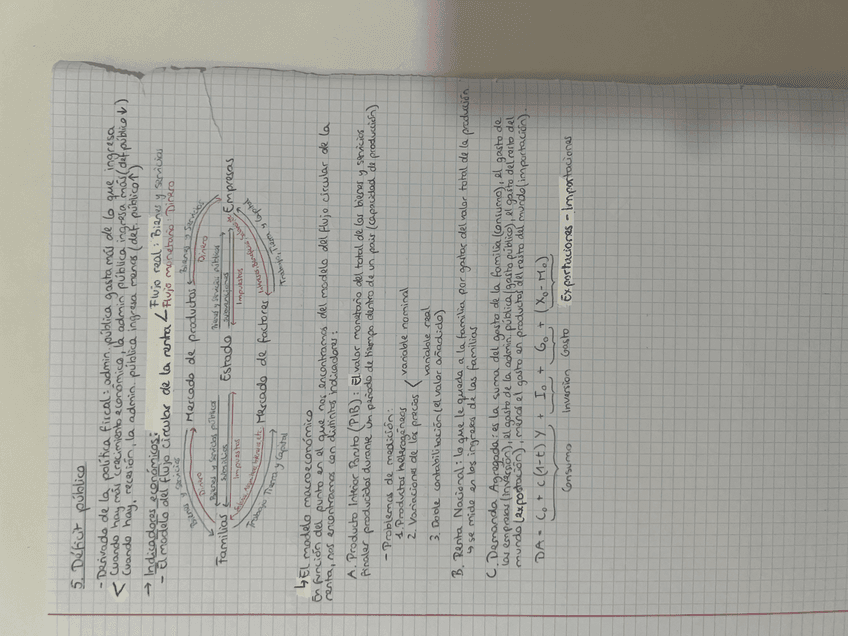 5. Déficit público
- Derivado de la política fiscal: admin. pública gasta más de lo que ingresa
< Cuando hay más crecimiento económico, la admin pública ingresa más (def. público ↓)
Cuando hay, recesión, la admin. pública ingresa menos (def. público ↑)
→ Indicadores económicos:
- El modelo del flujo circular de la renta < Flujo real: Bienes y servicios
Flujo monetario: Dinero
Bienes y Servicios
Dinero
Mercado de productos
Bienes y Servicios
Dinero
Familias
Bienes y Servicios públicos
Impuestos
Estado
Bienes y Servicios públicos
Subvenciones
Impuestos
Empresas
Trabajo Tierra y Capital
Mercado de factores
Trabajo Tierra y Capital
↳ El modelo macroeconómico
En función del punto en el que nos encontramos del modelo del flujo circular de la
renta, nos encontramos con distintos indicadores:
A. Producto Interior Bruto (PIB): El valor monetario del total de los bienes y servicios
finales producidos durante un período de tiempo dentro de un país (capacidad de producción)
- Problemas de medición:
1. Productos heterogéneos
2. Variaciones de los precios < variable nominal
variable real
3. Doble contabilización (el valor añadido)
B. Renta Nacional: lo que le queda a la familia por gastar del valor total de la producción
↳ se mide en los ingresos de las familias
C. Demanda Agregada: es la suma del gasto de la familia (consumo), el gasto de
las empresas (inversión), el gasto de la admin. pública (gasto público), el gasto del resto del
mundo (exportación), menos el gasto en productos del resto del mundo (importación).
DA = C₀ + c(1-t)Y + I₀ + G₀ + (X₀ - M₀)
Consumo Inversion Gasto Exportaciones - Importaciones